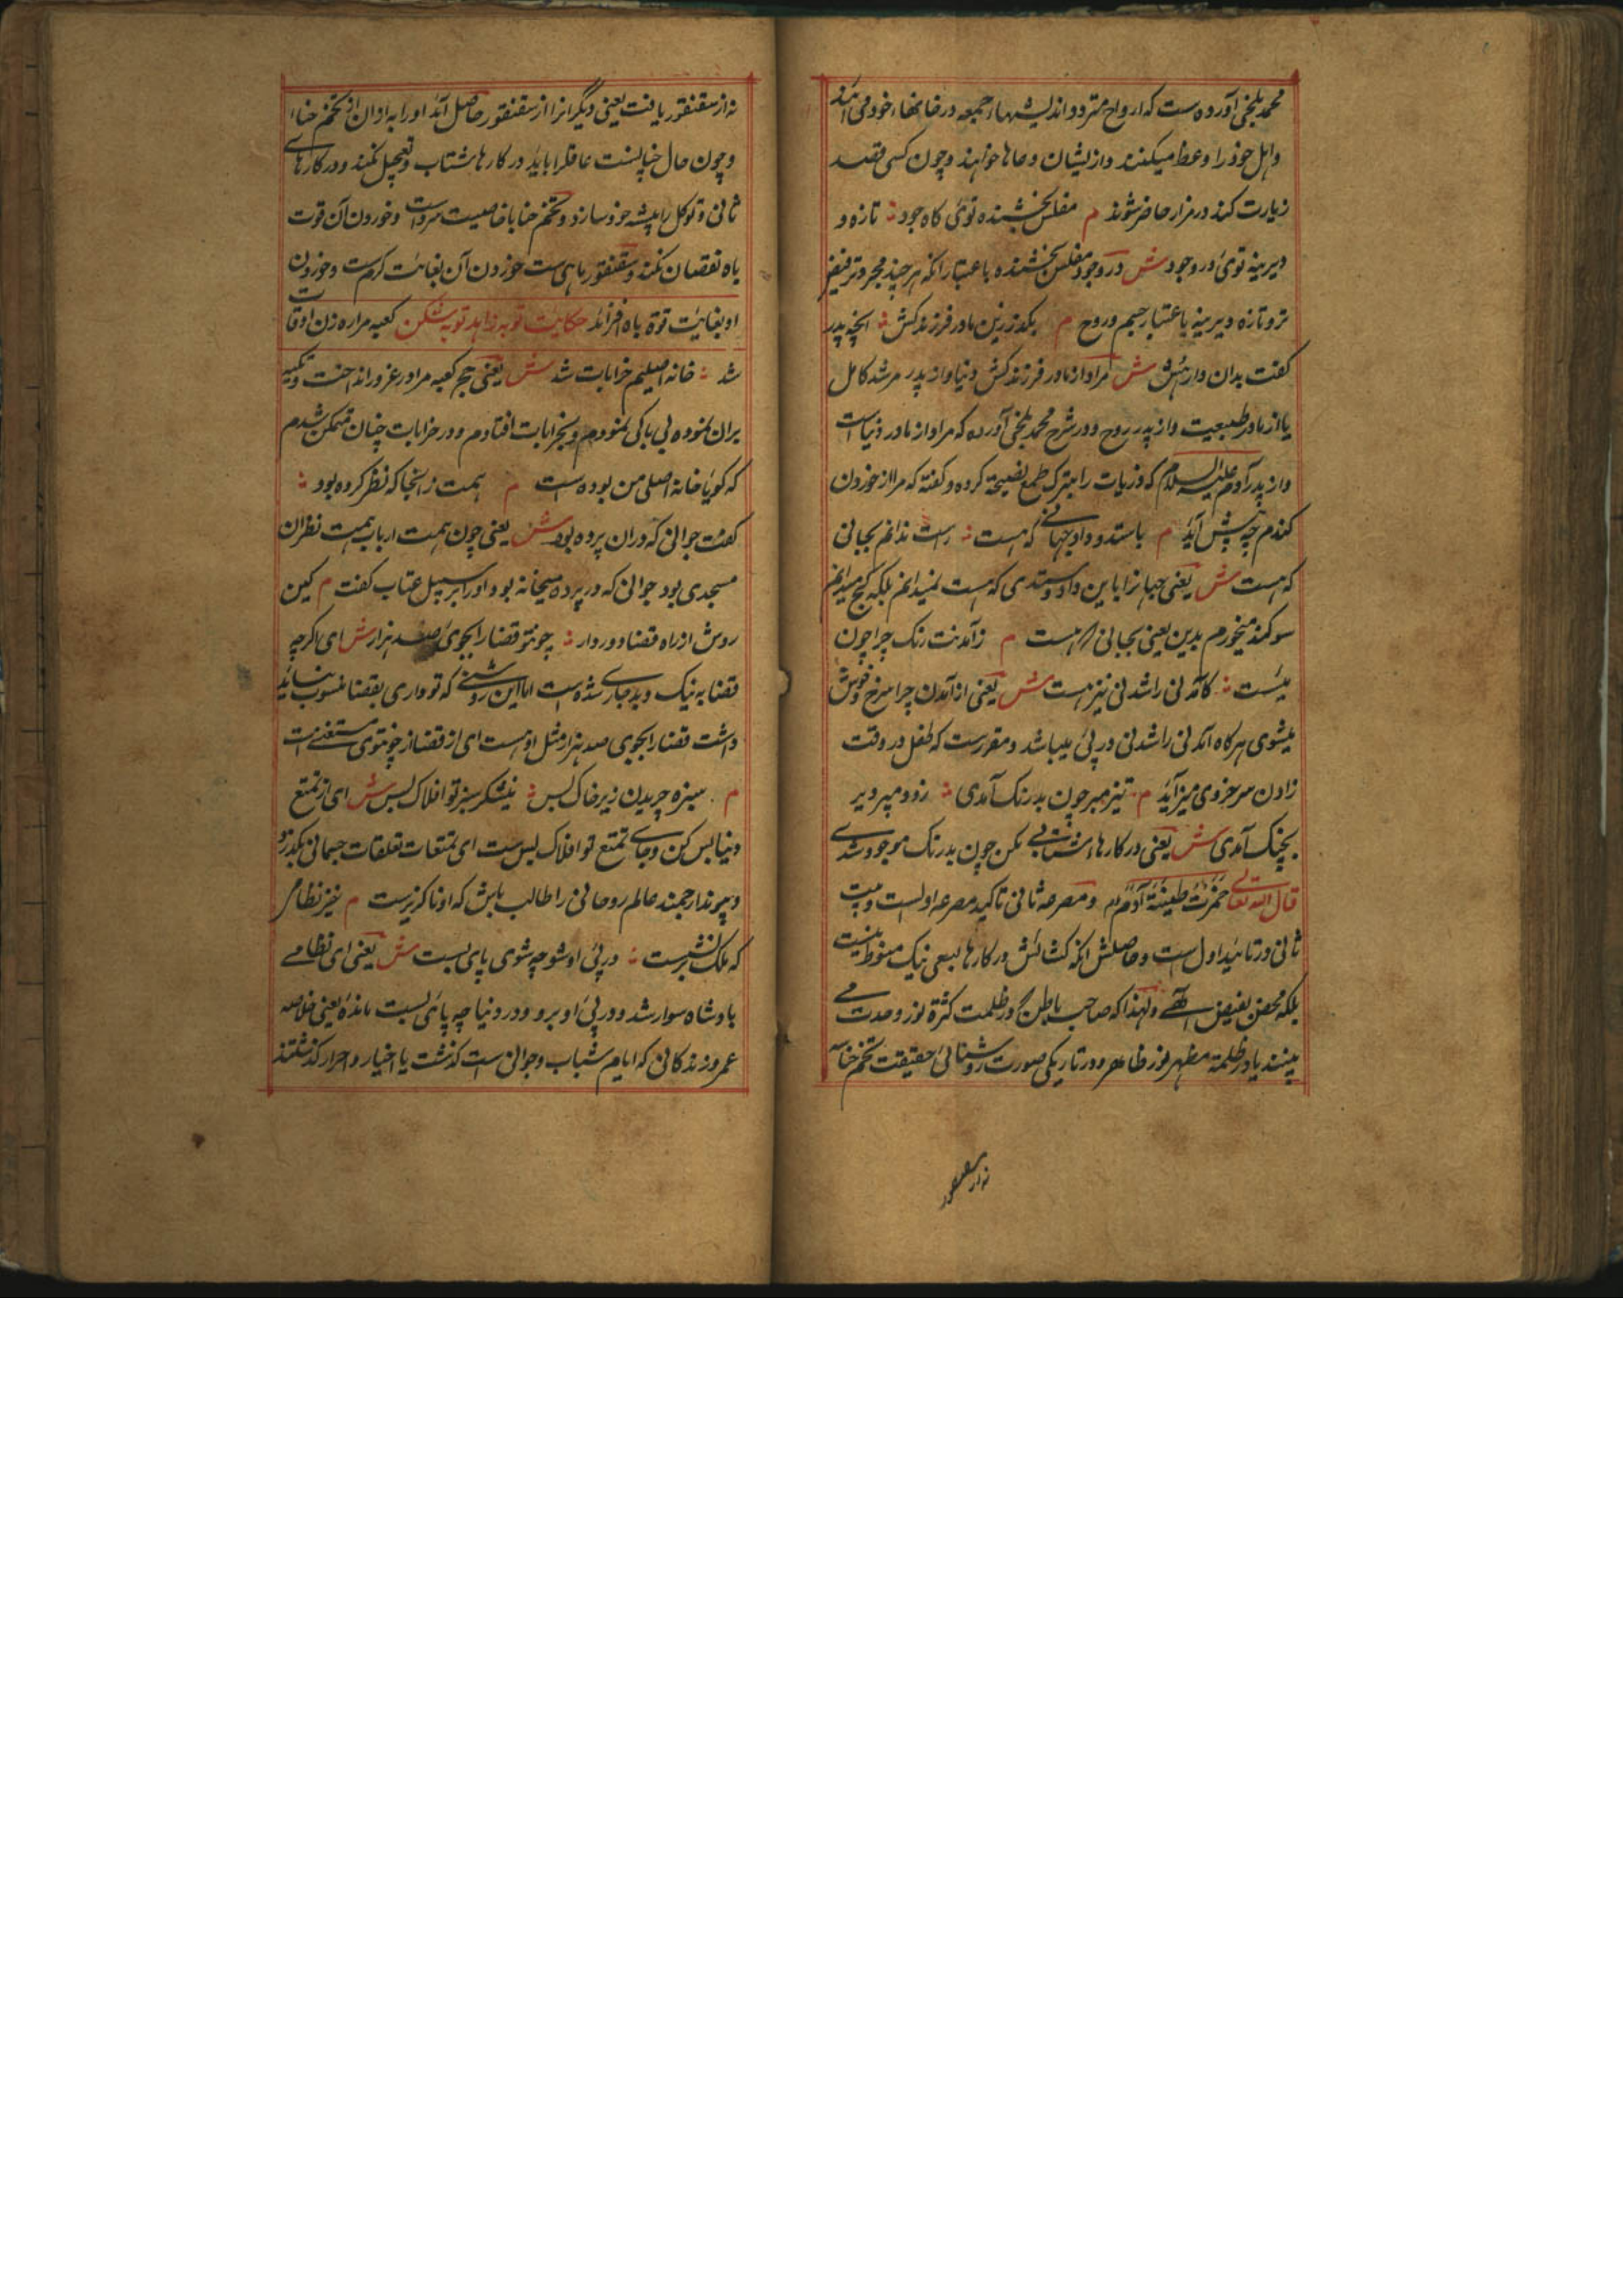 محمد بلخی آورده ست که ارواح متردد اندیشبها جمعه در خانهاء خود می آیند
و اهل خود را وعظ میکنند و از یشان دعاها خواهند و چون کسی قصد
زیارت کند در مزار حاضر شوند م مفلس بخشنده توئی گاه جود ؞ تازه و
دیرینه توئی در وجود ش در وجود مفلس بخشنده باعتبار انکه هر چند مجرد و فقیر
تر و تازه و دیرینه باعتبار جسم و روح م بگذر زین مادر فرزند کش ؞ انچه پدر
گفت بدان دار هش ش مراد از مادر فرزند کش دنیا و از پدر مرشد کامل
یا از مادر طبیعت و از پدر روح و در شرح محمد بلخی آورده که مراد از مادر دنیاست
و از پدر آدم علیه السلام که ذریات را بترک طمع نصیحة کرده و گفته که مرا از خوردن
گندم چه پیش آید م باستد و داد جهانی که هست ؞ راست ندانم بجبانی
که هست ش یعنی جهانرا باین داد و ستدی که هست نمیدانم بلکه کج میدانم
سوگند میخورم بدین یعنی بجبانی که هست م زآمدنت رنگ چرا چون
میست ؞ کامدنی را شدنی نیز هست ش یعنی از آمدن چرا سرخ و خوش
میشوی هر گاه آمدنی را شدنی در پی میباشد و مقررست که طفل در وقت
زادن سرخروی میزآید م تیز مپر چون بدرنگ آمدی ؞ زود مرو دیر
بچنگ آمدی ش یعنی در کارهاء شتابی مکن چون بدرنگ موجود شدی
قال الله تعالی خمرت طینة آدم و مصرعه ثانی تاکید مصرعه اولست و بیت
ثانی در تائید اول است و حاصلش انکه کشائش در کارها بسعی نیک منوط نیست
بلکه محض بفیض الهی و لهذا که صاحب باطن در ظلمت کثرة نور وحدت می
بینند یا در ظلمة مظهر نور ظاهر و در تاریکی صورت روشنائی حقیقت تخم حنا
نه از سقنقور
نه از سقنقور یافت یعنی دیگر انرا از سقنقور حاصل آید او را به از ان از تخم حناا
و چون حال چنانست عاقلرا باید در کارها شتاب و تعجیل نکند و در کارهاے
ثانی و توکل را پیشه خود سازد و تخم حنا با خاصیت سرد است و خوردن آن قوت
باه نقصان کند و سقنقور ماهی ست خوردن آن بغائت گرم ست و خوردن
او بغائت قوة باه افزائد حکایت توبه زاهد توبه شکن کعبه مرا ره زن اوقات
شد ؞ خانه اصلیم خرابات شد ش یعنی حج کعبه مرا در غرور انداخت و تکیه
بران نموده بی باکی نمودم و بخرابات افتادم و در خرابات چنان متمکن شدم
که گویا خانه اصلی من بوده ست م همت زانجا که نظر کرده بود ؞
گفت جوانی که دران پرده بود ش یعنی چون همت ارباب همت نظر ان
مسجدی بود جوانی که در پرده میخانه بود او را بر سبیل عتاب گفت م کین
روش از راه قضا دور دار ؞ چونتو قضا را بجوی صد هزار ش ای اگر چه
قضا به نیک و بد جاری شده ست اما این روشنے که تو داری بقضا منسوب نباید
داشت قضا را بجوی صد هزار مثل او هست ای از قضا از چو توی مستغنی ست
م سبزه چریدن زیر خاک بس ؞ نیشکر سبز تو افلاک بس ش ای از تمتع
دنیا بس کن و جای تمتع تو افلاک بس ست ای تمتعات تعلقات جسمانی بگذر
و پیوند ارجمند عالم روحانی را طالب باش که او ناگزیرست م نیز نظامی
که ملک برنشست ؞ در پی او شو چه شوی پای بست ش یعنی ای نظامے
بادشاه سوار شد و در پئی او برو و در دنیا چه پائی بست ماندهٔ یعنی خلاصه
عمر و زندگانی که ایام شباب و جوانی است گذشت یا اخیار و احرار گذشتند